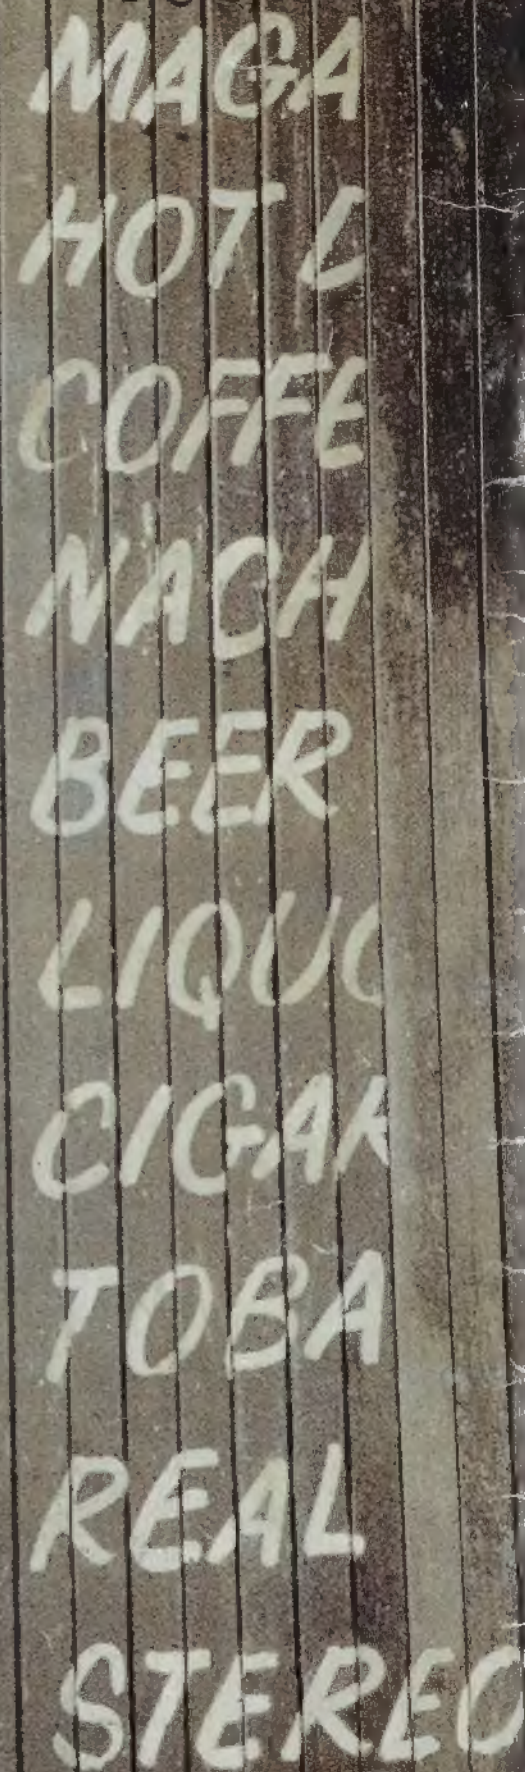 MAGA
HOT D
COFFE
NACH
BEER
LIQUO
CIGAR
TOBA
REAL
STEREO